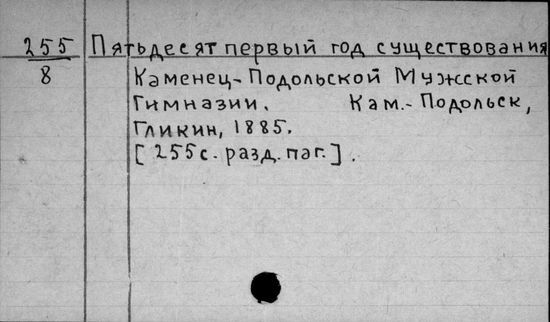 255 Пятьдесят первый год существования
8 Каменец-Подольской Мужской
Гимназии. Кам.-Подольск,
Гликин, 1885.
[255 с. разд. паг.].